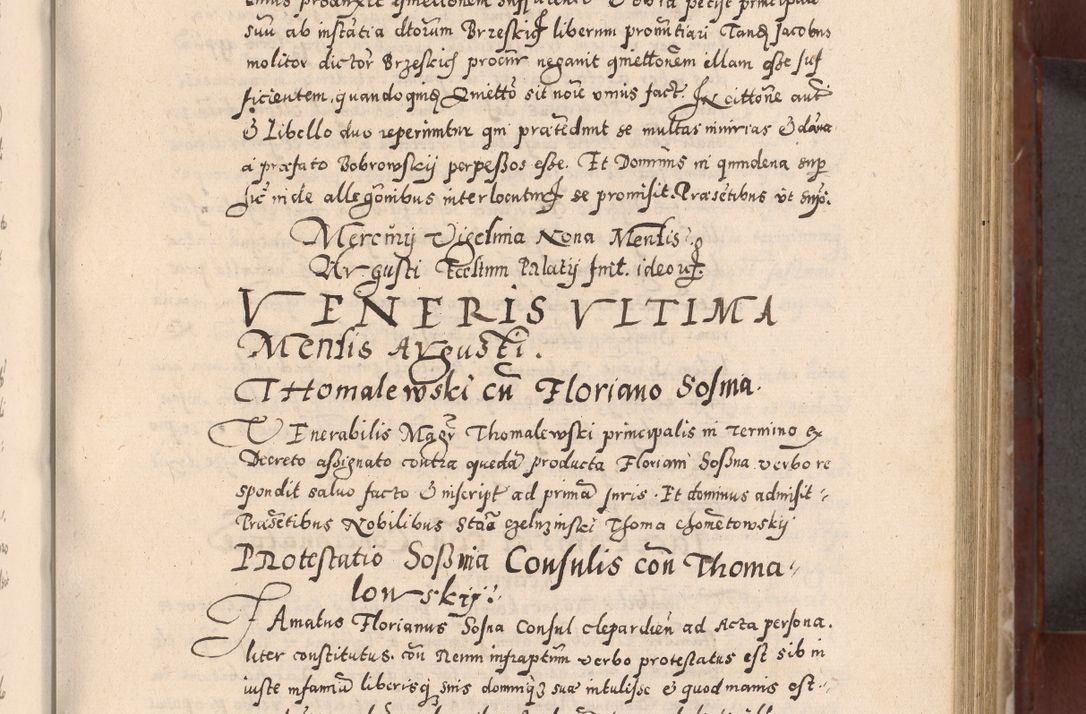 suu ab instātia dtorum Brzeskich liberum pronūtiari Tandē Jacobus
molitor dictor Brzeskich procur negavit qmettonem illam esße suf
ficientem, quandoquidē Qmetto sit noīe unius fact. In cittōne autē
& Libello duo reperiuntur qui prætēdunt se multas iniurias & dāna
a præfato Bobrowskij perpeßos eße. Et Dominus in quindena sup
hic inde allegōnibus interlocutur se promisit. Præsētibus ut supr.
Mercurij Vigesima Nona Mensis
Augusti Festum Palatij fuit. ideo
VENERIS VLTIMA
Mensis Augusti.
THomalewski cū Floriano Soſnia.
VEnerabilis Magr Thomalewski principalis in Termino ex
Decreto aſsignato contra quedā producta Floriani Soßna verbo re
spondit salvo facto & inscript ad primā Juris. Et dominus admisit
Præsētibus Nobilibus Thoma chometowskij
PRotestatio Soßnia Consulis cōn Thoma
lowskij.
FAmatus Florianus Sosna Consul clepardien ad Acta persona.
liter constitutus. cōn Renm infraptum verbo protestatus est sibi in
iuste infamiā liberisq suis domniq suæ intulisse & quod manis est